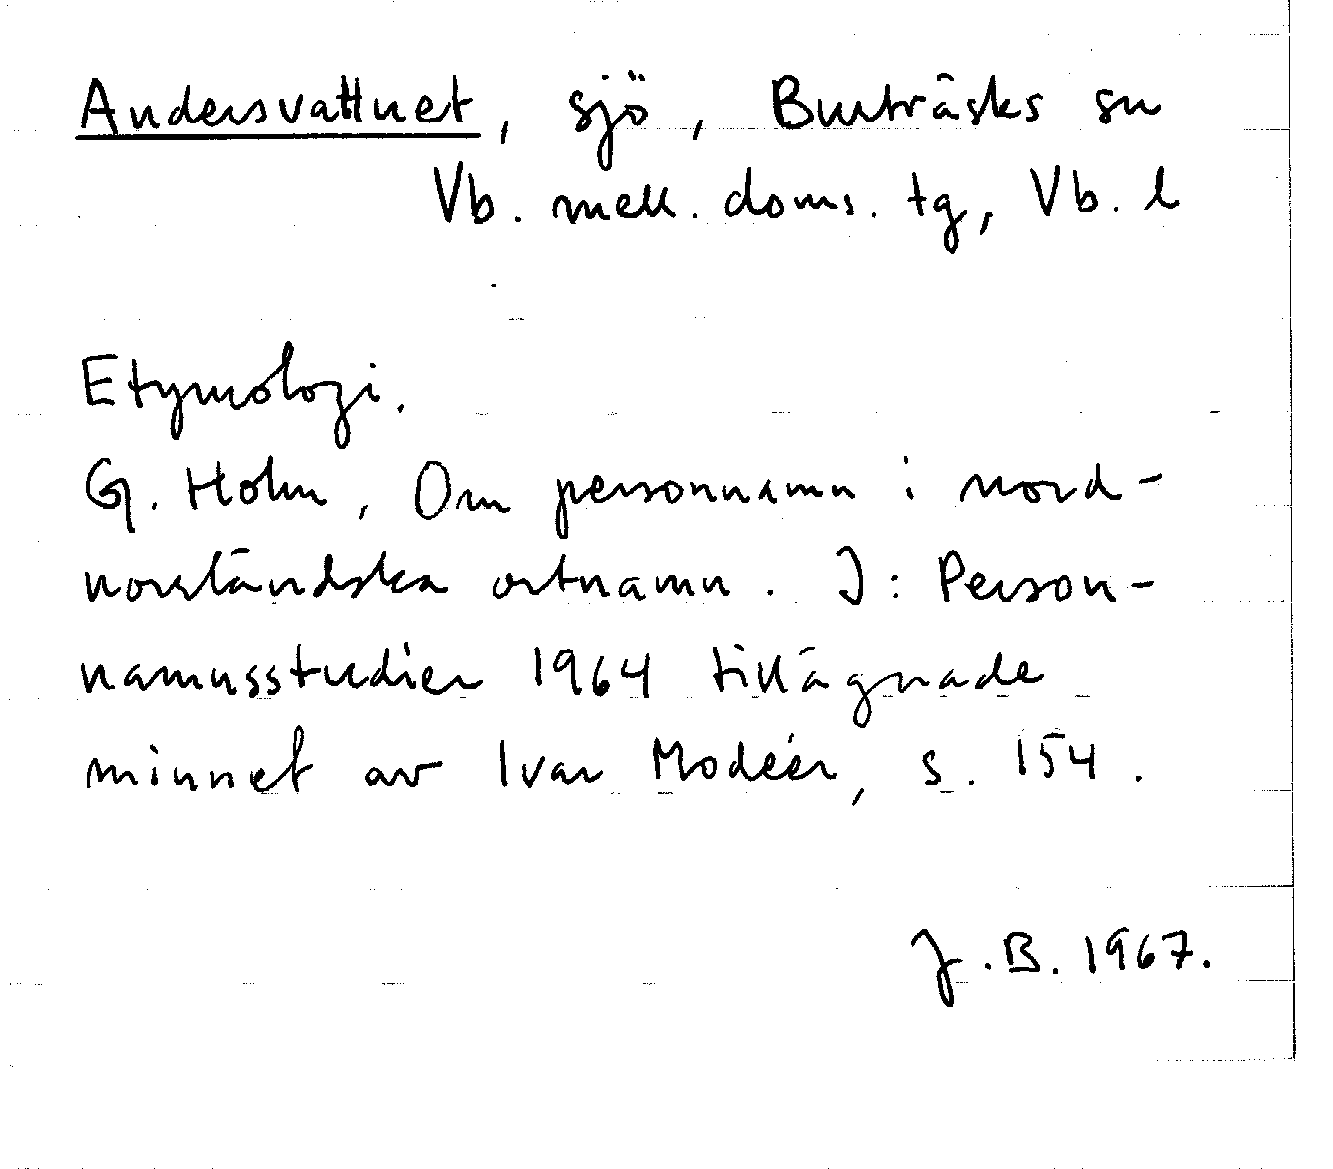 Andersvattnet, sjö, Burträsks sn
Vb. mell. doms. tg, Vb. l
Etymologi.
G. Holm, Om personnamn i nord-
norrländska ortnamn. I: Person-
namnsstudier 1964 tillägnade
minnet av Ivar Modéer, s. 154.
J.B. 1967.